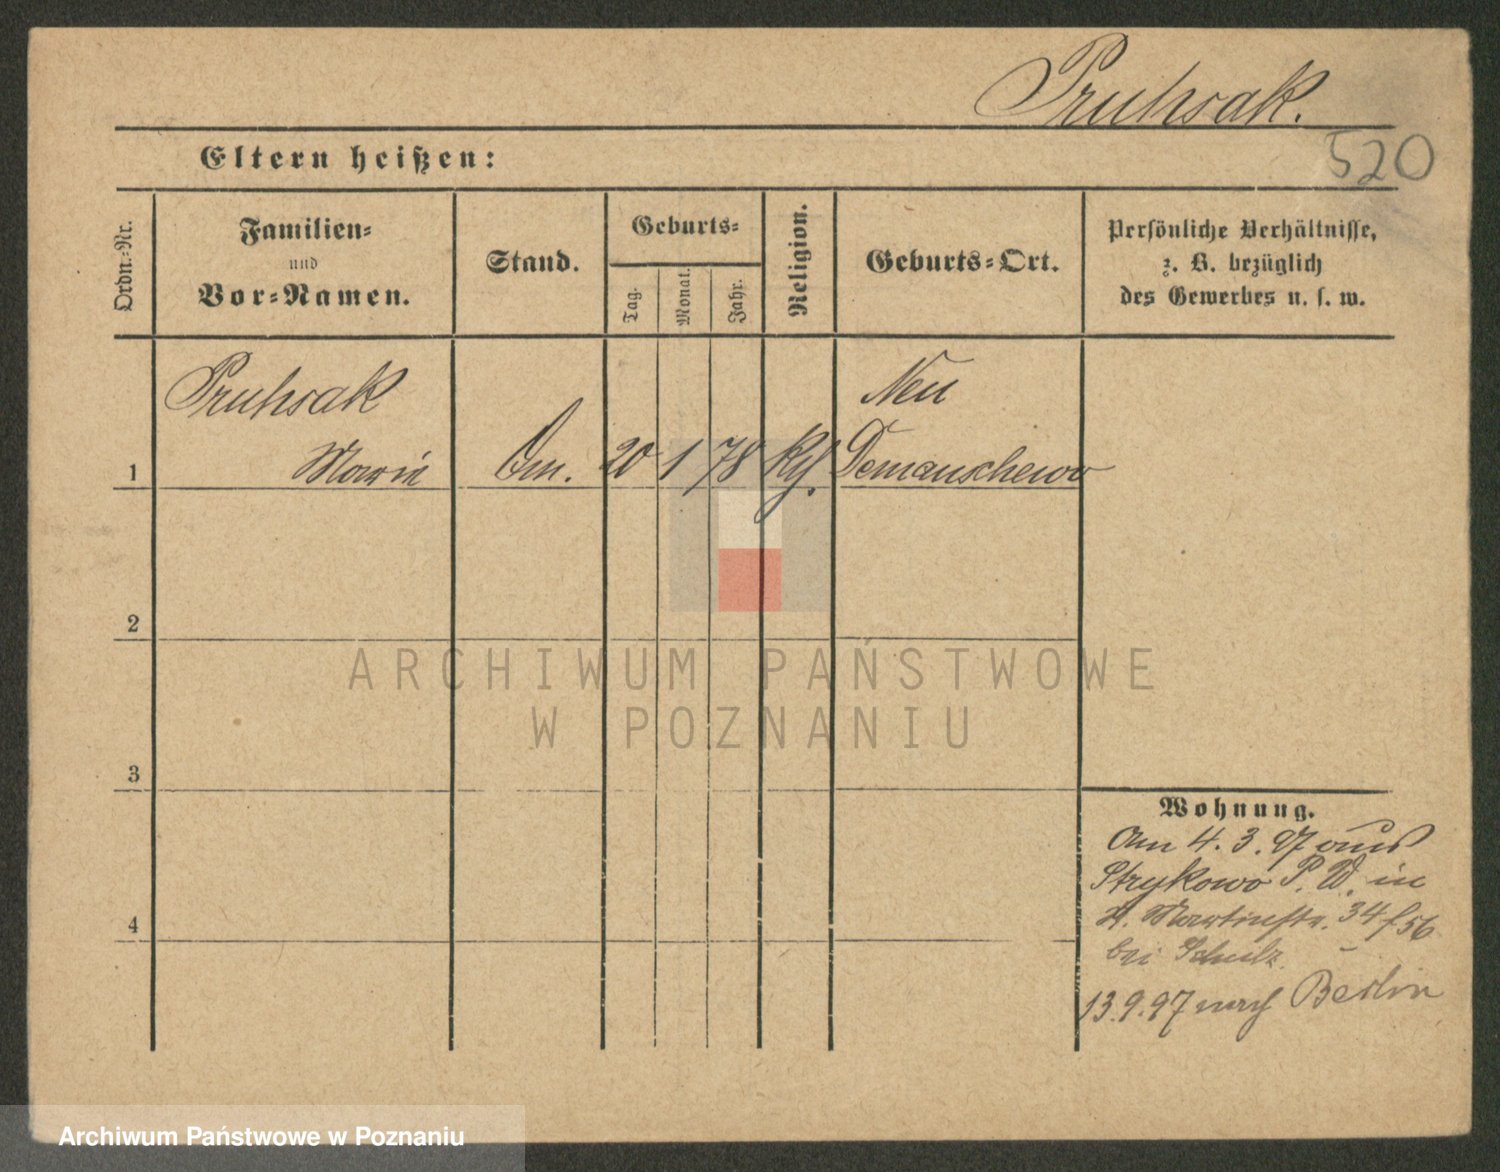 Pruhsak.
520
Eltern heißen:
Ordn.-Nr.
Familien-
und
Vor-Namen.
Stand.
Geburts-
Tag.
Monat.
Jahr.
Religion.
Geburts-Ort.
Persönliche Verhältnisse,
z. B. bezüglich
des Gewerbes u. s. w.
1
Pruhsak
Marie
20
1
78
Neu
Demanschewo
2
3
4
ARCHIWUM PAŃSTWOWE
W POZNANIU
Wohnung.
Am 4. 3. 97 aus
Strykowo P. W. in
Martinstr. 34
bei Schulz.
13.9.97 nach Berlin
Archiwum Państwowe w Poznaniu